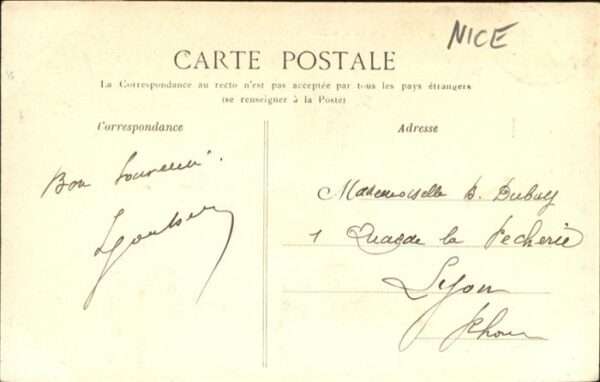 NICE
CARTE POSTALE
La Correspondance au recto n'est pas acceptée par tous les pays étrangers
(se renseigner à la Poste)
Correspondance
Adresse
Bon souvenir.
Mademoiselle B. Dubuy
1 Quai de la Pecherie
Lyon
Rhone